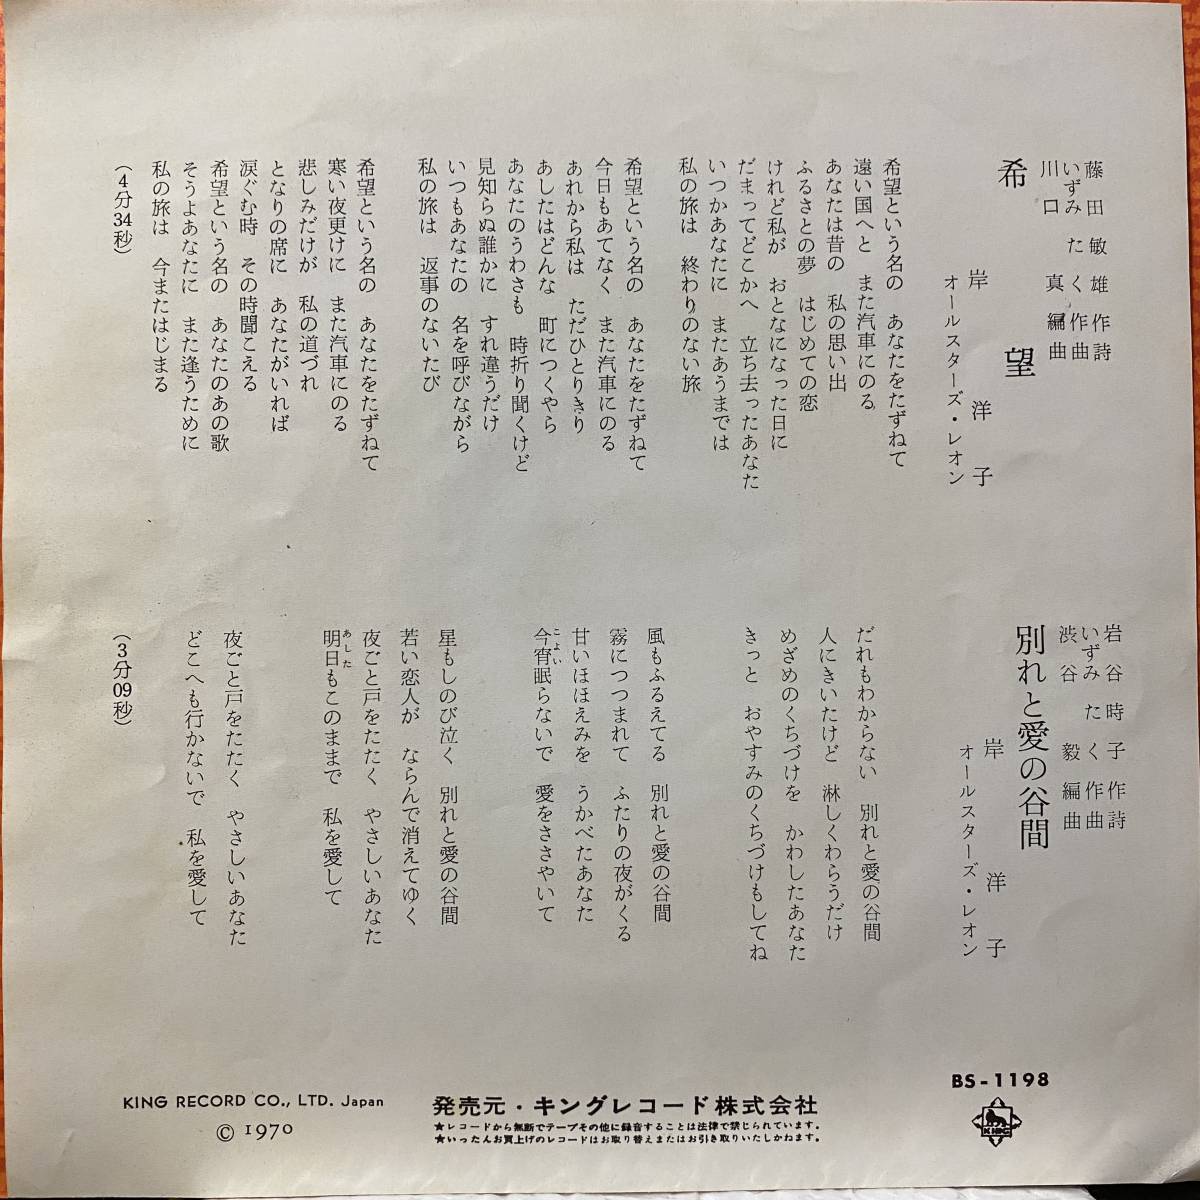 藤田敏雄 作詩
いずみたく 作曲
川口真 編曲
希望
岸洋子
オールスターズ・レオン
希望という名の　あなたをたずねて
遠い国へと　また汽車にのる
あなたは昔の　私の思い出
ふるさとの夢　はじめての恋
けれど私が　おとなになった日に
だまってどこかへ　立ち去ったあなた
いつかあなたに　またあうまでは
私の旅は　終わりのない旅
希望という名の　あなたをたずねて
今日もあてなく　また汽車にのる
あれから私は　ただひとりきり
あしたはどんな　町につくやら
あなたのうわさも　時折り聞くけど
見知らぬ誰かに　すれ違うだけ
いつもあなたの　名を呼びながら
私の旅は　返事のないたび
希望という名の　あなたをたずねて
寒い夜更けに　また汽車にのる
悲しみだけが　私の道づれ
となりの席に　あなたがいれば
涙ぐむ時　その時聞こえる
希望という名の　あなたのあの歌
そうよあなたに　また逢うために
私の旅は　今またはじまる
（4分34秒）
岩谷時子 作詩
いずみたく 作曲
渋谷毅 編曲
別れと愛の谷間
岸洋子
オールスターズ・レオン
だれもわからない　別れと愛の谷間
人にきいたけど　淋しくわらうだけ
めざめのくちづけを　かわしたあなた
きっと　おやすみのくちづけもしてね
風もふるえてる　別れと愛の谷間
霧につつまれて　ふたりの夜がくる
甘いほほえみを　うかべたあなた
今宵眠らないで　愛をささやいて
こよい
星もしのび泣く　別れと愛の谷間
若い恋人が　ならんで消えてゆく
夜ごと戸をたたく　やさしいあなた
明日もこのままで　私を愛して
あした
夜ごと戸をたたく　やさしいあなた
どこへも行かないで　私を愛して
（3分09秒）
BS-1198
KING
KING RECORD CO., LTD. Japan
© 1970
発売元・キングレコード株式会社
★レコードから無断でテープその他に録音することは法律で禁じられています。
★いったんお買上げのレコードはお取り替えまたはお引き取りいたしかねます。